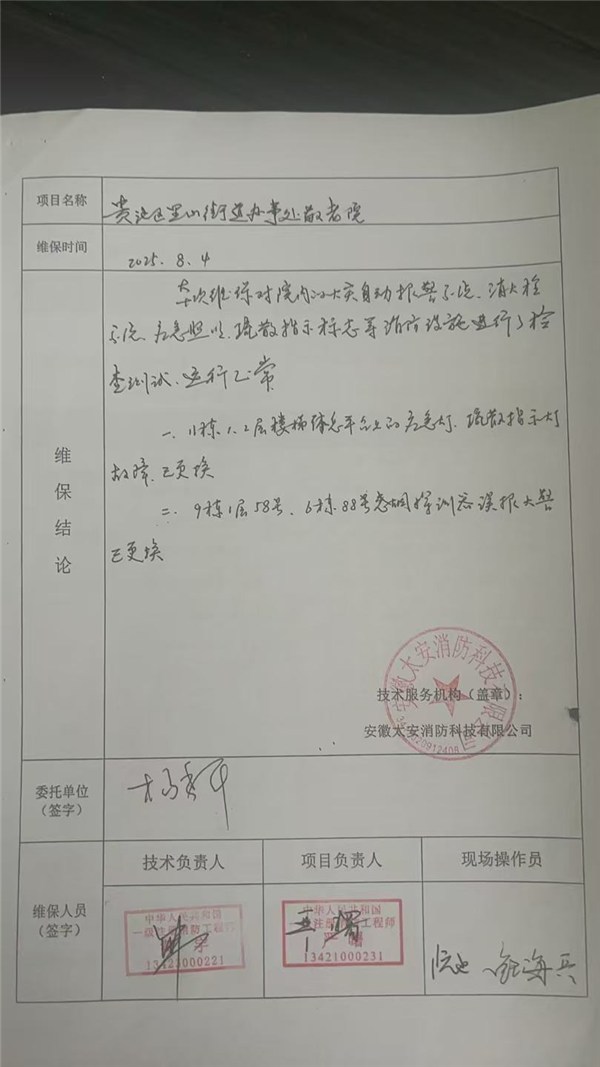 项目名称 贵池区里山街道办事处敬老院
维保时间 2025.8.4
维保结论
本次维保对院内的火灾自动报警系统、消火栓
系统、应急照明、疏散指示标志等消防设施进行了检
查测试、运行正常
一、11栋1、2层楼梯休息平台上的应急灯、疏散指示灯
故障、已更换
二、9栋1层58号、6栋88号感烟探测器误报火警
已更换
安徽太安消防科技有限公司
技术服务机构（盖章）：
安徽太安消防科技有限公司
委托单位
（签字）
技术负责人 项目负责人 现场操作员
维保人员
（签字）
中华人民共和国
一级注册消防工程师
13423000221
中华人民共和国
注册 工程师
13421000231
海兵